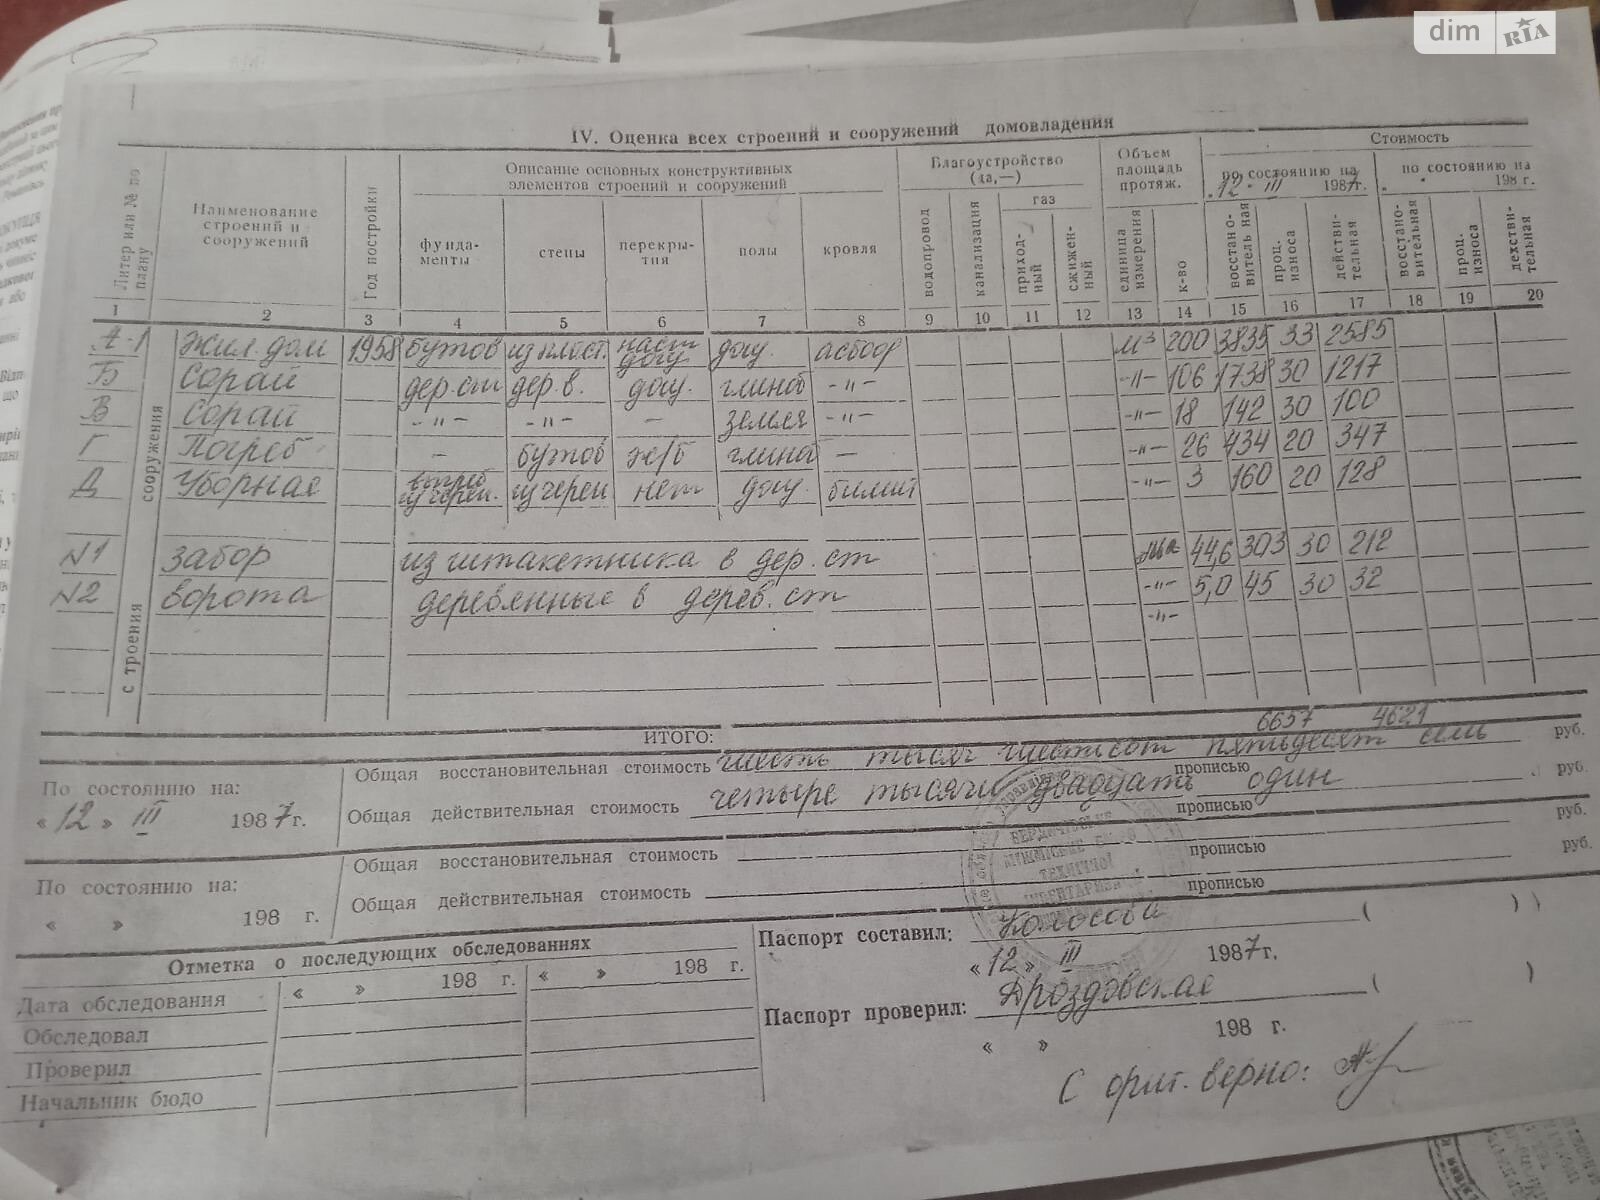 dim RIA
IV. Оценка всех строений и сооружений домовладения
Литер или № по плану
Наименование строений и сооружений
Год постройки
Описание основных конструктивных элементов строений и сооружений
фунда-
менты
стены
перекры-
тия
полы
кровля
Благоустройство
(да,—)
водопровод
канализация
газ
приход-
ный
сжижен-
ный
Объем
площадь
протяж.
единица
измерения
к-во
Стоимость
по состоянию на
12 III 1987г.
по состоянию на
198 г.
восстано-
витель ная
проц.
износа
действи-
тельная
восстано-
вительная
проц.
износа
дехстви-
тельная
1 2 3 4 5 6 7 8 9 10 11 12 13 14 15 16 17 18 19 20
А-1 Жил. дом 1958 бутов из пласт. дощ. асбоф м³ 200 3835 33 2585
Б Сорай дер.ст дер.в. дощ. глиноб -"- -"- 106 1738 30 1217
В Сорай -"- -"- — земля -"- -"- 18 142 30 100
Г Погреб - бутов ж/б глиноб — -"- 26 434 20 347
Д Уборная из череп. нет дощ. -"- 3 160 20 128
N1 забор из штакетника в дер. ст 44,6 303 30 212
N2 ворота деревянные в дерев. ст -"- 5,0 45 30 32
-"-
сооружения
с троения
ИТОГО: 6657 4621
По состоянию на:
«12» III 1987г.
Общая восстановительная стоимость шесть тысяч шестьсот пятьдесят семь руб.
прописью
Общая действительная стоимость четыре тысячи двадцать один руб.
прописью
По состоянию на:
« » 198 г.
Общая восстановительная стоимость руб.
прописью
Общая действительная стоимость руб.
прописью
Отметка о последующих обследованиях
Дата обследования « » 198 г. « » 198 г.
Обследовал
Проверил
Начальник бюдо
Паспорт составил: ( )
«12» III 1987г.
Паспорт проверил: Дроздовская ( )
« » 198 г.
С ориг. верно: